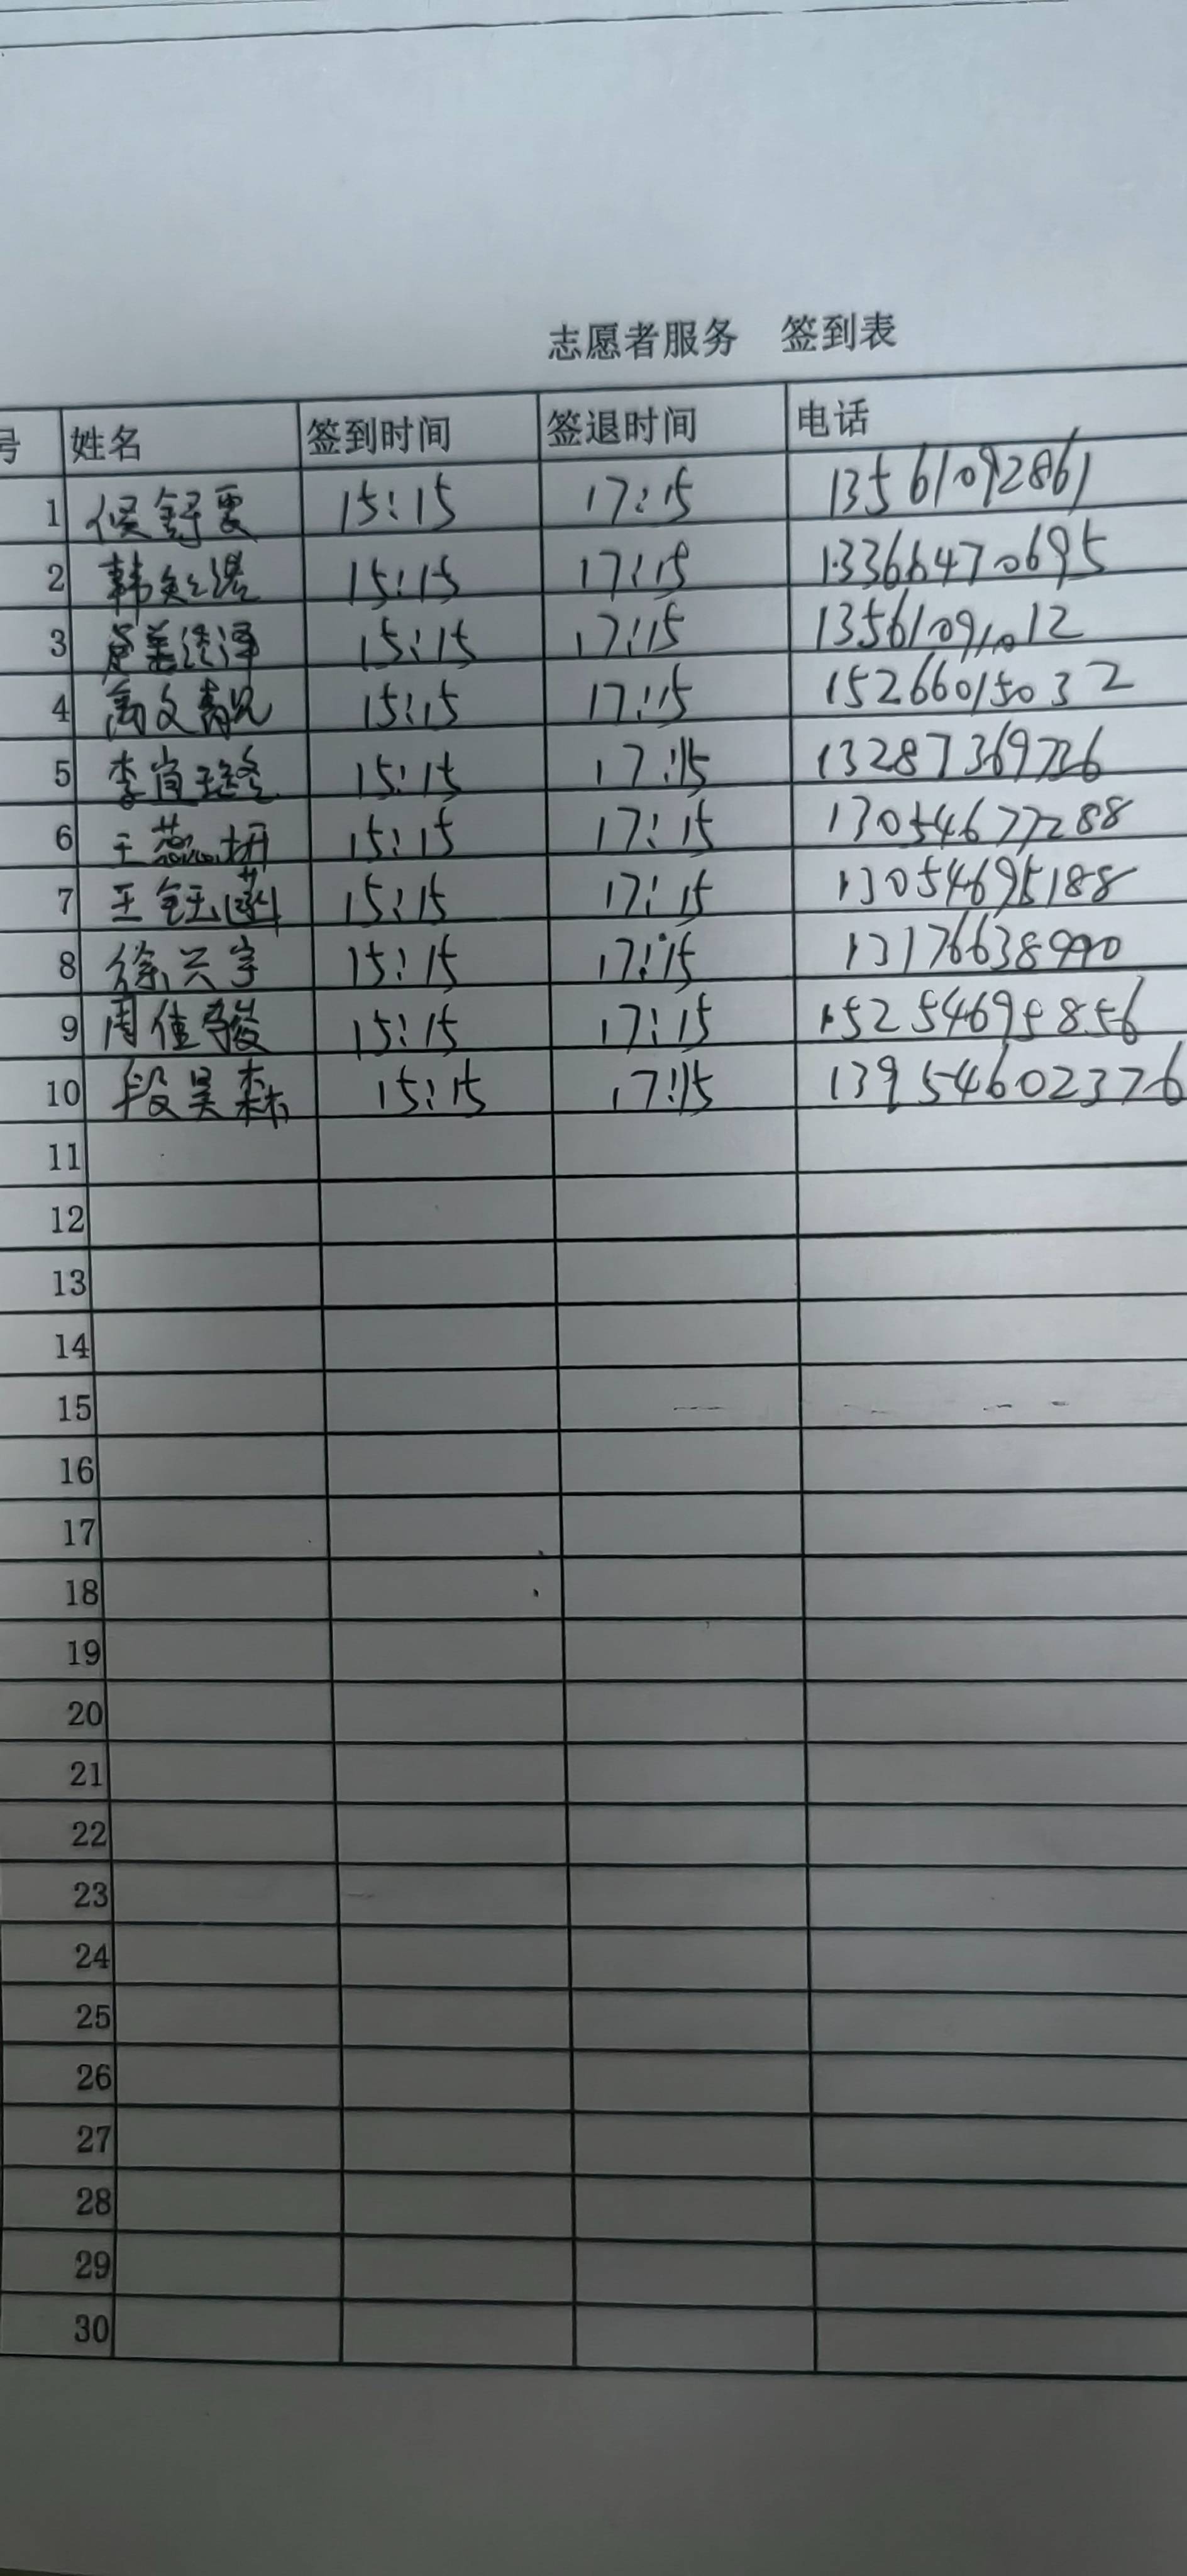 志愿者服务 签到表
号 姓名 签到时间 签退时间 电话
1 侯舒雯 15:15 17:15 13561092861
2 韩 15:15 17:15 13366470695
3 15:15 17:15 13561091012
4 文 15:15 17:15 15266015032
5 李 15:15 17:15 13287369726
6 王蕊妍 15:15 17:15 13054677288
7 王钰涵 15:15 17:15 13054695188
8 徐兴宇 15:15 17:15 13176638990
9 周佳骏 15:15 17:15 15254695856
10 段昊森 15:15 17:15 13954602376
11
12
13
14
15
16
17
18
19
20
21
22
23
24
25
26
27
28
29
30